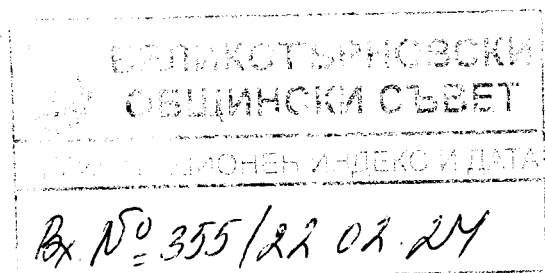 ВЕЛИКОТЪРНОВСКИ
ОБЩИНСКИ СЪВЕТ
РЕГИСТРАЦИОНЕН ИНДЕКС И ДАТА
Вх № 355/22 02.24